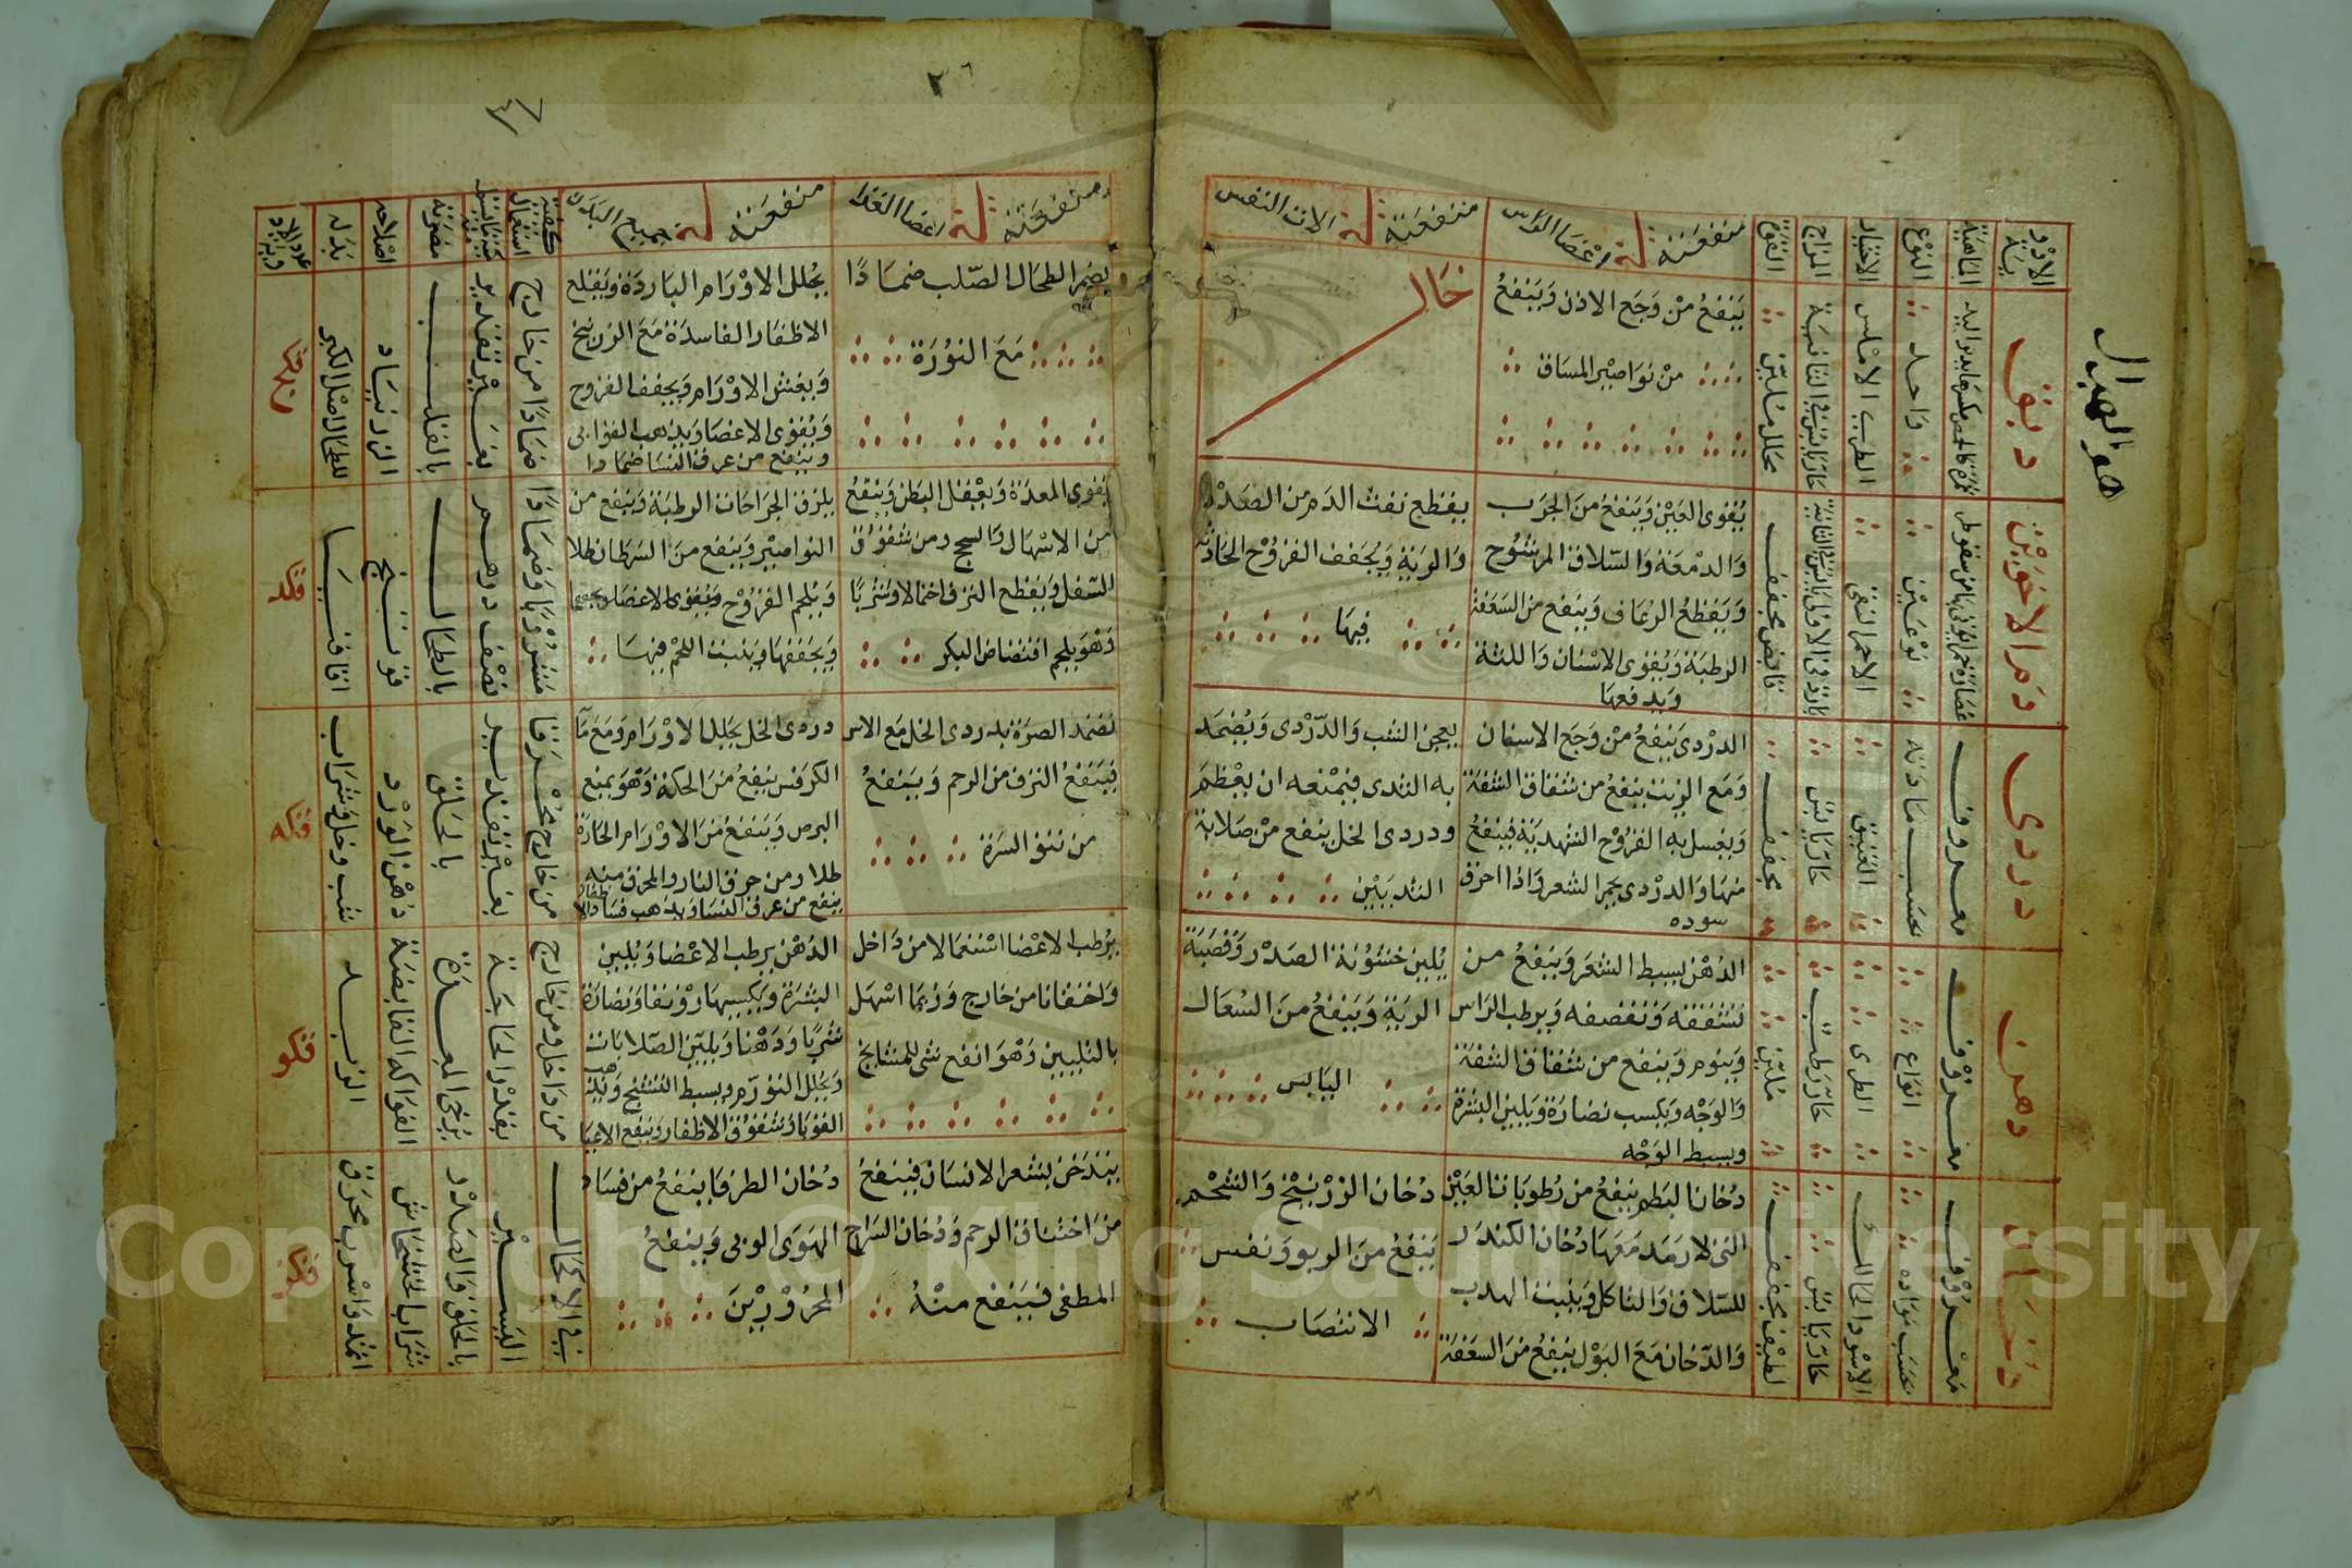 حرف الدال
الادوية
الماهية
النوع
الاختيار
المزاج
القوة
منفعته في اعضا الراس
منفعته في الات النفس
دبق
واحد
الطرب الاملس
حار يابس في الثانية
محلل ملين
ينفع من وجع الاذن وينفع
من نواصير المساق
خال
دم الاخوين
نوعين
الاحمر النقي
بارد في الاولى يابس في الثانية
قابض مجفف
يقوى العين وينفع من الجرب
والدمعة والسلاق المر شوح
ويقطع الرعاف وينفع من السعفة
الرطبة ويقوى الاسنان واللثة
ويدفعها
يقطع نفث الدم من الصدر
والرية ويجفف القروح الحادثة
فيها
دردى
معروف
بحسب مادته
العتيق
حار يابس
مجفف
الدردى ينفع من وجع الاسنان
ومع الزيت ينفع من شقاق الشفة
ويغسل به القروح الشهدية فينفع
منها والدردى يحمر الشعر واذا احرق
سوده
يعجن الشب والدردى ويضمد
به الثدى فيمنعه ان يعظم
ودردى الخل ينفع من صلابة
الثديين
دهن
معروف
انواع
الطرى
حار رطب
ملين
الدهن يبسط الشعر وينفع من
تشققه وتقصفه ويرطب الراس
وينوم وينفع من شقاق الشفة
والوجه ويكسب نضارة ويلين البشرة
ويبسط الوجه
يلين خشونة الصدر وقصبة
الرية وينفع من السعال
اليابس
دخان
معروف
بحسب مواده
الاسود الحالك
حار يابس
لطيف مجفف
دخان البطم ينفع من رطوبات العين
التى لا رمد معها دخان الكندر
للسلاق والتاكل وينبت الهدب
والدخان مع البول ينفع من السعفة
دخان الزرنيخ والشحم
ينفع من الربو ونفس
الانتصاب
٢٦
منفعته في اعضا الغذا
منفعته في جميع البدن
كيفية استعماله
مضرته
اصلاحه
بدله
يضمر الطحال الصلب ضمادا
مع النورة
يحلل الاورام الباردة ويقلع
الاظفار الفاسدة مع الزرنيخ
ويفش الاورام ويجفف القروح
ويقوى الاعضا ويذهب القوابى
وينفع من عرق النسا ضمادا
ضمادا من خارج
بغير تقدير
بالقلب
الزرنباد
للطحال اصل الكبر
يقوى المعدة ويعقل البطن وينفع
من الاسهال والسحج ومن شقوق
السفل ويقطع النزف احتمالا وشربا
وهو يلحم افتضاض البكر
يلزق الجراحات الرطبة وينفع من
النواصير وينفع من السرطان طلا
ويلحم القروح ويقوى الاعضا
ويجففها وينبت اللحم فيها
مشروبا وضمادا
نصف درهم
بالطحال
اقاقيا
فكد
تضمد الصرة بدردى الخل مع الاس
فينفع النزف من الرحم وينفع
من نتو السرة
دردى الخل يحلل الاورام ومع ما
الكرفس ينفع من الحكة وهو يمنع
البرص وينفع من الاورام الحارة
طلا ومن حرق النار والمحرق منه
ينفع من عرق النسا ويذهب فساد
من خارج محرقا
بغير تقدير
بالحلق
دهن الورد
شب وخل وشراب
فكه
يرطب الاعضا استعمالا من داخل
واحتقانا من خارج وربما اسهل
بالتليين وهو انفع شى للمشايخ
الدهن يرطب الاعضا ويلين
البشرة ويكسبها رونقا ونضارة
شربا ودهنا ويلين الصلابات
ويحلل التورم ويبسط التشنج
القوبا وشقوق الاظفار وينفع الاعيا
من داخل ومن خارج
بقدر الحاجة
يرخى المعدة
الفواكه القابضة
الزبد
فكو
يتدخن بشعر الانسان فينفع
من اختناق الرحم ودخان السراج
المطفى فينفع منه
دخان الطرفا ينفع من فساد
الهوى الوبى وينفع
المجدورين
في الاكحال
اليسير
بالحلق والصدر
شراب الخشخاش
اثمد واسرب محرق
فكز